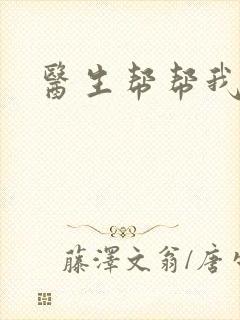 醫生帮帮我
藤澤文翁/唐